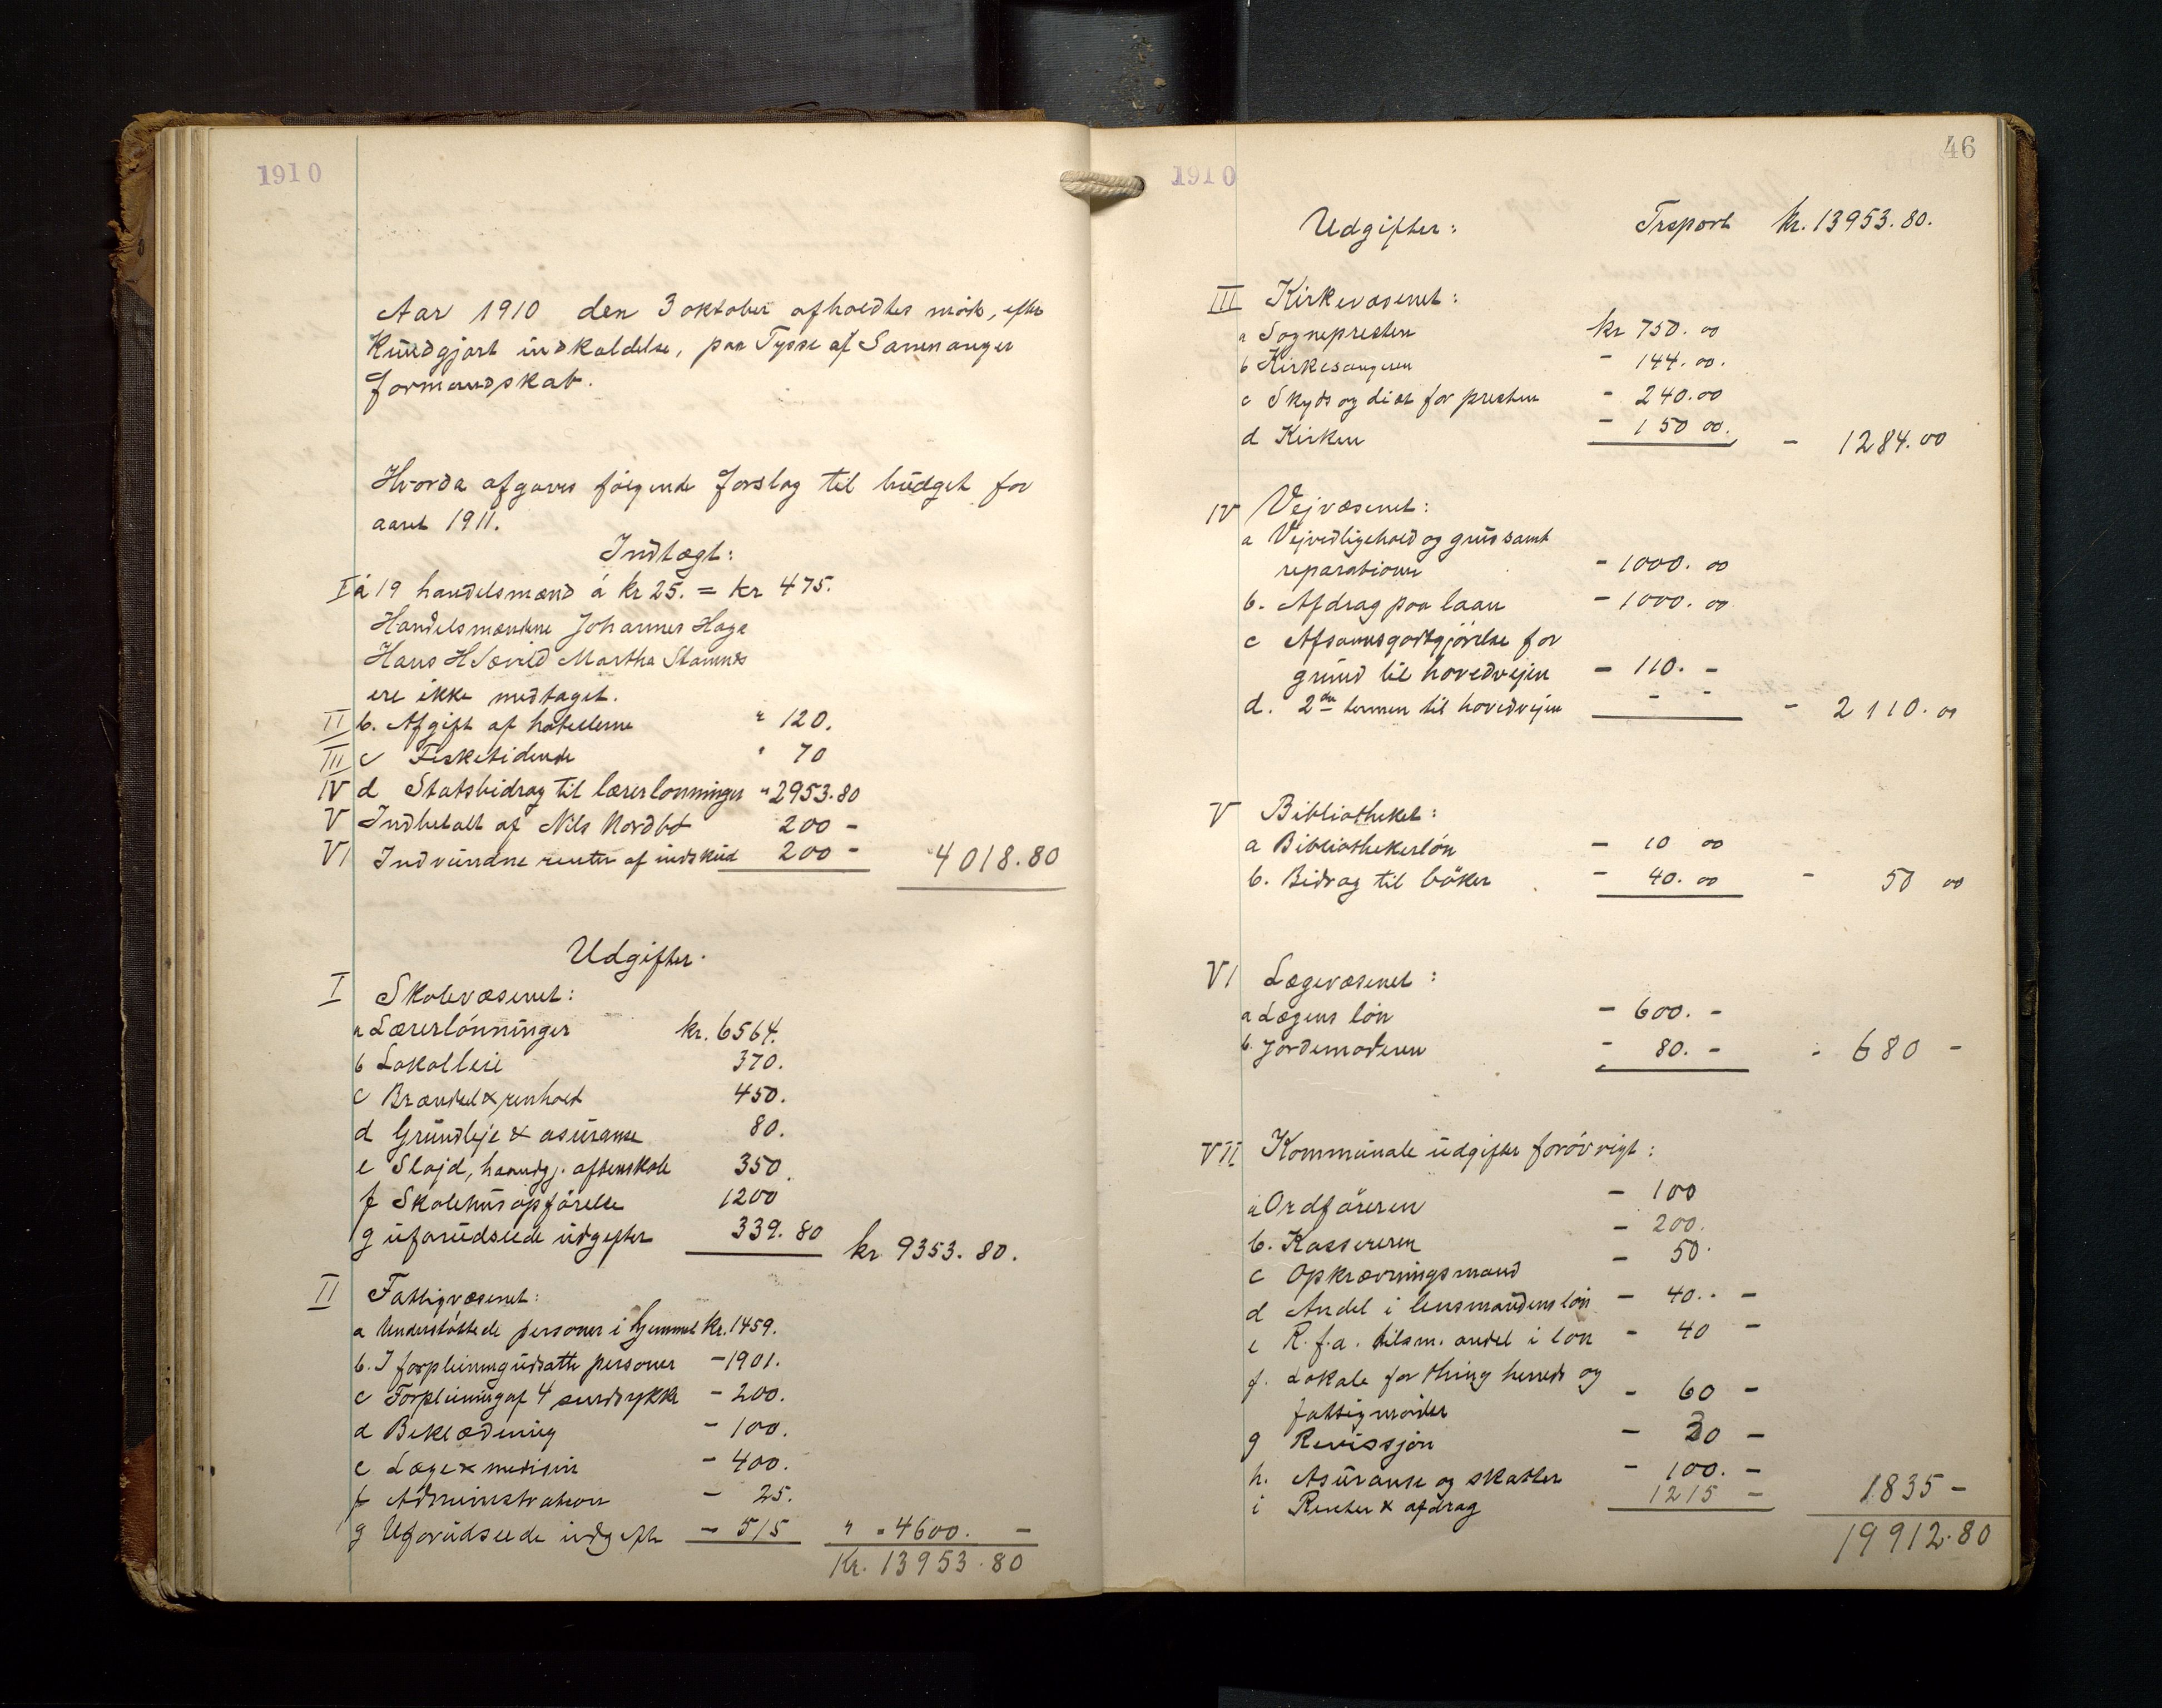 1910
Aar 1910 den 3 oktober afholdtes möde, efter
kundgjort indkaldelse, paa Tysse af Samnanger
formandskab.
Hvorda afgaves fölgende forslag til budget for
aaret 1911.
Indtægt:
I á 19 handelsmænd á kr 25. = kr 475.
Handelsmændene Johannes Hage
Hans H Sævild Martha Stamnes
ere ikke medtaget.
II b. Afgift af hotellerne " 120.
III c Fisketidende " 70
IV d Statsbidrag til lærerlønninger " 2953.80
V Indbetalt af Nils Nordbö 200 -
VI Indvundne renter af indskud 200 - 4018.80
Udgifter.
I Skolevæsenet:
a Lærerlönninger kr. 6564.
b Lokalleie 370.
c Brændsel & renhold 450.
d Grundleje & asuranse 80.
e Slojd, haandgj. aftenskole 350.
f Skolehusopförelse 1200
g uforudseede udgifter 339.80 kr 9353.80.
II Fattigvæsenet:
a Understöttede personer i hjemmet Kr. 1459.
b. I forpleining udsatte personer - 1901.
c Forpleining af 4 sindsyke - 200.
d Beklædning - 100.
e Læge & medisin - 400.
f Administration - 25.
g Uforudseede udgifter - 515 " - 4600. -
Kr. 13953.80
1910
46
Udgifter: Trsport kr. 13953.80.
III Kirkevæsenet:
a Sognepresten kr 750.00
b Kirkesangeren - 144.00.
c Skyds og diæt for presten - 240.00
d Kirken - 150 00. - 1284.00
IV Vejvæsenet:
a Vejvedligehold og grus samt
reparationer - 1000.00
b. Afdrag paa laan - 1000.00
c Afsavnsgodtgjörelse for
grund til hovedvejen - 110. -
d. 2den termin til hovedvejen - - - 2110.00
V Bibliotheket:
a Bibliothekerlön - 10 00
b. Bidrag til böker - 40.00 - 50 00
VI Lægevæsenet:
a Lægens lön - 600. -
b. Jordemoderen - 80. - - 680 -
VII Kommunale udgifter forövrigt:
a Ordföreren - 100
b. Kassereren - 200.
c Opkrævningsmand - 50.
d Andel i lensmandens lön - 40. -
e R.f.a. tilsm. andel i lön - 40 -
f. Lokale for thing herreds og
fattigmöder - 60 -
g Revissjon - 30 -
h. Asuranse og skatter - 100. -
i Renter & afdrag 1215 - 1835 -
19912.80